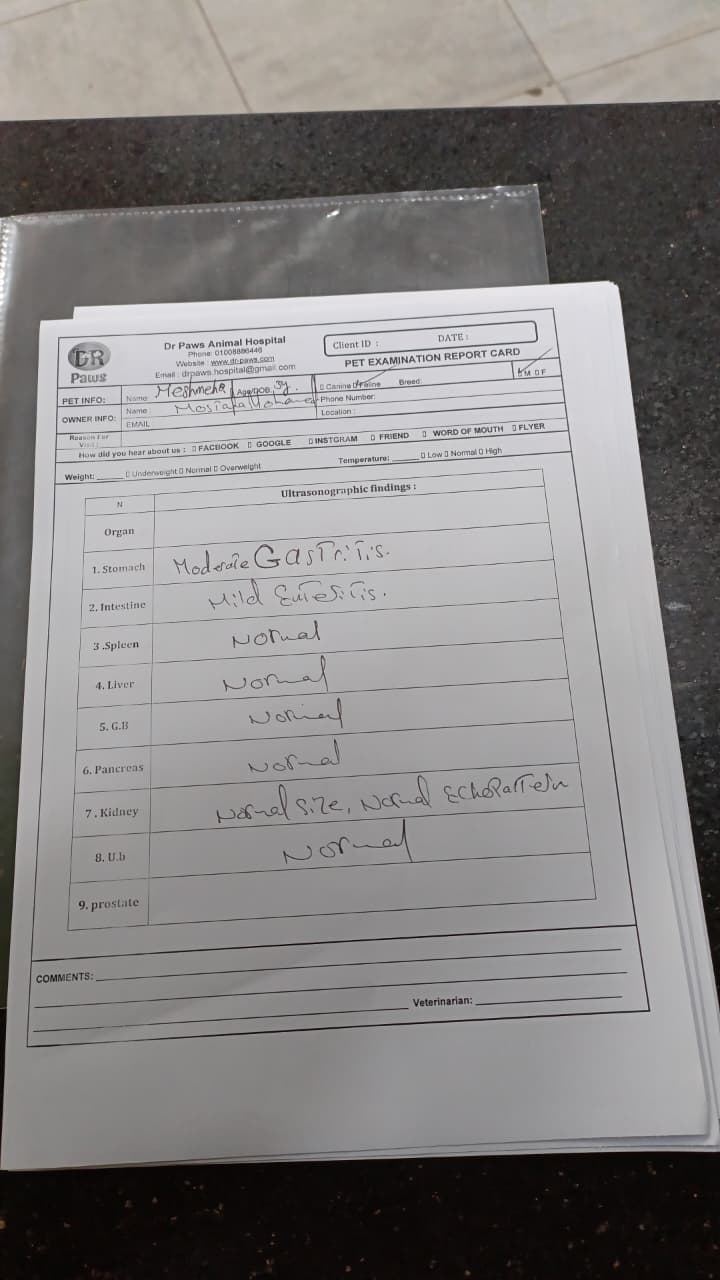 DR
Paws
Dr Paws Animal Hospital
Phone: 01008886446
Website : www.dr-paws.com
Email : drpaws.hospital@gmail.com
Client ID : DATE :
PET EXAMINATION REPORT CARD
PET INFO: Name Meshmeha Age/DOB: 3y. Canine Feline Breed: M F
OWNER INFO: Name Mostafa Mohamed Phone Number:
EMAIL Location :
Reason For Visit :
How did you hear about us : FACBOOK GOOGLE INSTGRAM FRIEND WORD OF MOUTH FLYER
Weight: Underweight Normal Overweight Temperature: Low Normal High
N Ultrasonographic findings :
Organ
1. Stomach Moderate Gastritis.
2. Intestine Mild Enteritis.
3 .Spleen Normal
4. Liver Normal
5. G.B Normal
6. Pancreas Normal
7. Kidney Normal Size, Normal Echopattern
8. U.b Normal
9. prostate
COMMENTS:
Veterinarian: